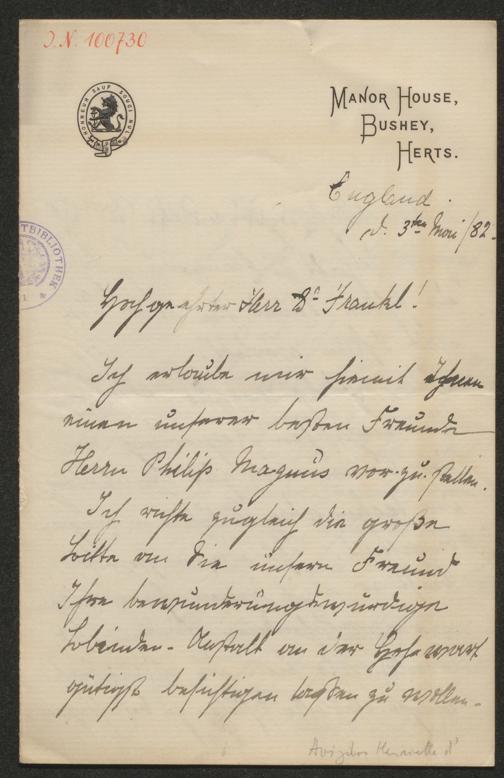 I. N. 100730
HONNEUR SAUF SOUCI NUL
MANOR HOUSE,
BUSHEY,
HERTS.
England.
d. 3ten Mai/82.
TBIBLIOTHEK
Hochgeehrter Herr Dr Frankl!
Ich erlaube mir hiemit Ihnen
einen unserer besten Freunde
Herrn Philip Magnus vor-zu-stellen.
Ich richte zugleich die große
Bitte an Sie unsern Freund
Ihre bewunderungswürdige
Blinden-Anstalt an der Hohe wart
gütigst besichtigen lassen zu wollen.
Avigdor Henriette d'